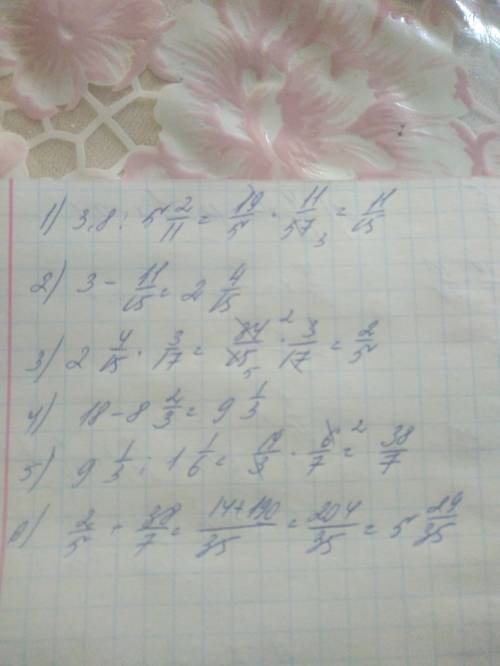 1) 3,8 : 5 2/11 = 19/5 · 11/57 3 = 11/15
2) 3 - 11/15 = 2 4/15
3) 2 4/15 · 3/17 = 34/15 5 2 · 3/17 = 2/5
4) 18 - 8 2/3 = 9 1/3
5) 9 1/3 : 1 1/6 = 19/3 · 6/7 2 = 38/7
6) 2/5 + 38/7 = 14+190/35 = 204/35 = 5 29/35